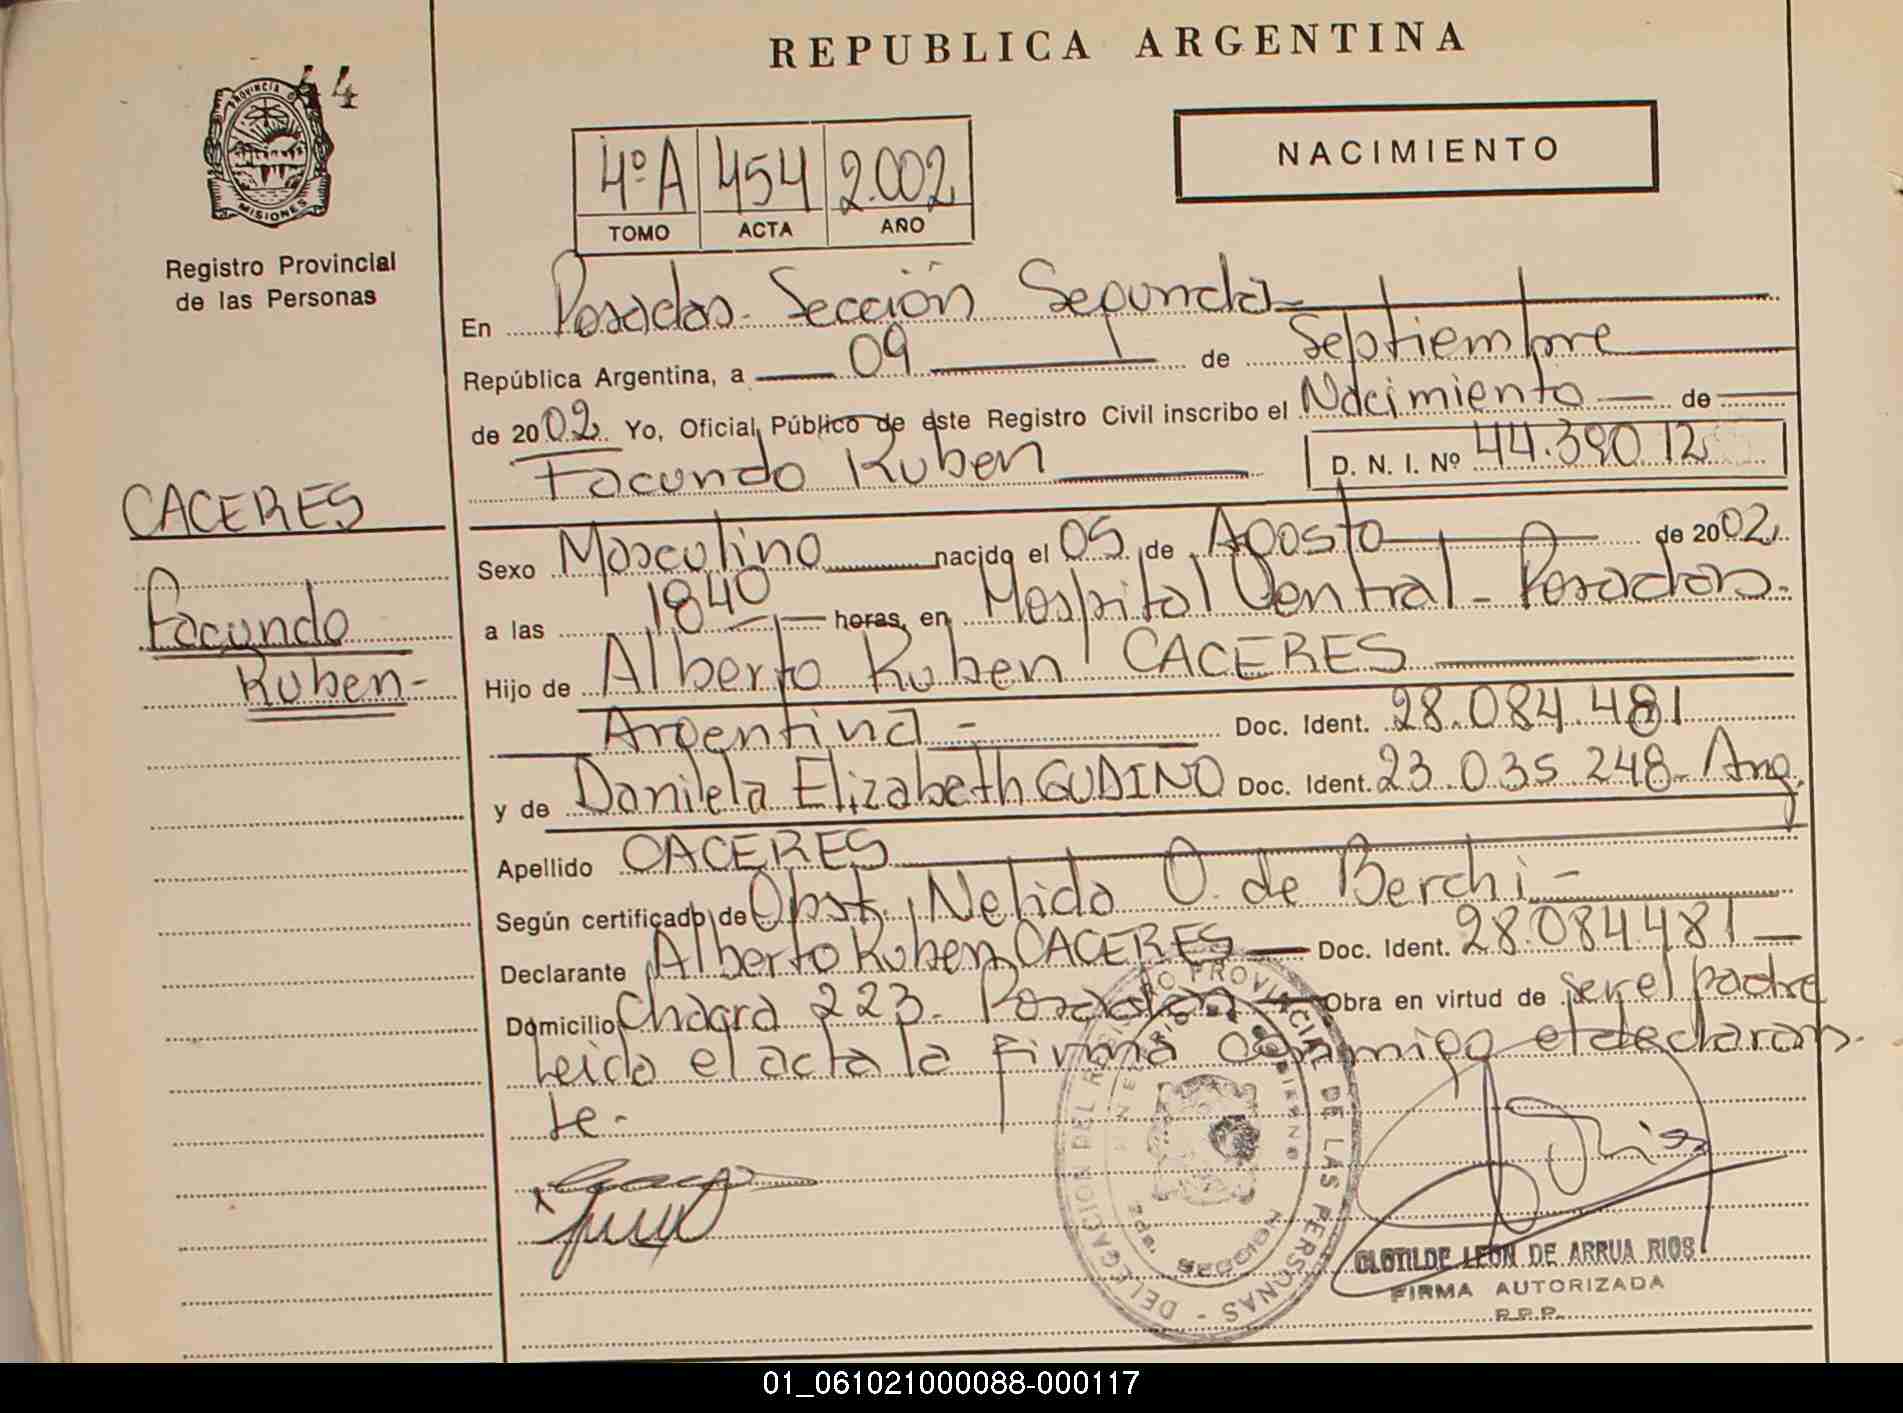 REPUBLICA ARGENTINA
44
PROVINCIA D
MISIONES
Registro Provincial
de las Personas
4º A 454 2.002
TOMO ACTA AÑO
NACIMIENTO
En Posadas. Sección Segunda
República Argentina, a 09 de Septiembre
de 2002 Yo, Oficial Público de este Registro Civil inscribo el Nacimiento de
Facundo Ruben D. N. I. Nº 44.390.12
CACERES
Facundo
Ruben-
Sexo Masculino nacido el 05 de Agosto de 2002
a las 1840 horas, en Hospital Central - Posadas.
Hijo de Alberto Ruben CACERES
Argentina - Doc. Ident. 28.084.481
y de Daniela Elizabeth GUDINO Doc. Ident. 23.035.248 - Arg.
Apellido CACERES
Según certificado de Obst. Nelida O. de Berchi -
Declarante Alberto Ruben CACERES Doc. Ident. 28.084.481
Domicilio Chacra 223. Posadas Obra en virtud de ser el padre
Leida el acta la firma conmigo el declaran
te.-
DELEGACION DEL REGISTRO PROVINCIAL DE LAS PERSONAS -
CLOTILDE LEON DE ARRUA RIOS
FIRMA AUTORIZADA
R.P.P.
01_061021000088-000117